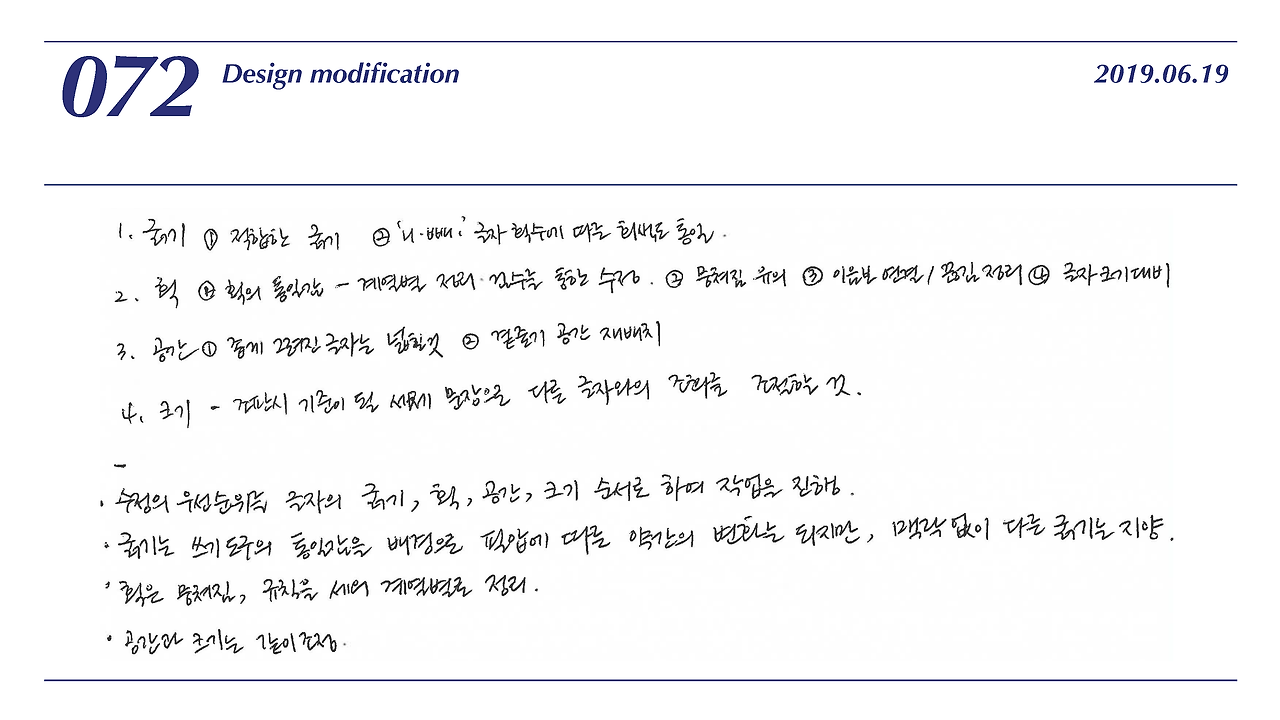 072
Design modification
2019.06.19
1. 굵기 ① 적합한 굵기 ② '니·빼' 글자 획수에 따른 회색도 통일.
2. 획 ① 획의 통일감 - 계열별 정리·검수를 통한 수정. ② 뭉쳐짐 유의 ③ 이음보 연결/끊김 정리 ④ 글자 크기 대비
3. 공간 ① 좁게 그려진 글자는 넓힐것 ② 곁줄기 공간 재배치
4. 크기 - 조판시 기준이 될 세 문장으로 다른 글자와의 조화를 조절할 것.
-
· 수정의 우선순위는 글자의 굵기, 획, 공간, 크기 순서로 하여 작업을 진행.
· 굵기는 쓰기도구의 통일감을 배경으로 필압에 따른 약간의 변화는 되지만, 맥락 없이 다른 굵기는 지양.
· 획은 뭉쳐짐, 규칙을 세워 계열별로 정리.
· 공간과 크기는 같이 조정.